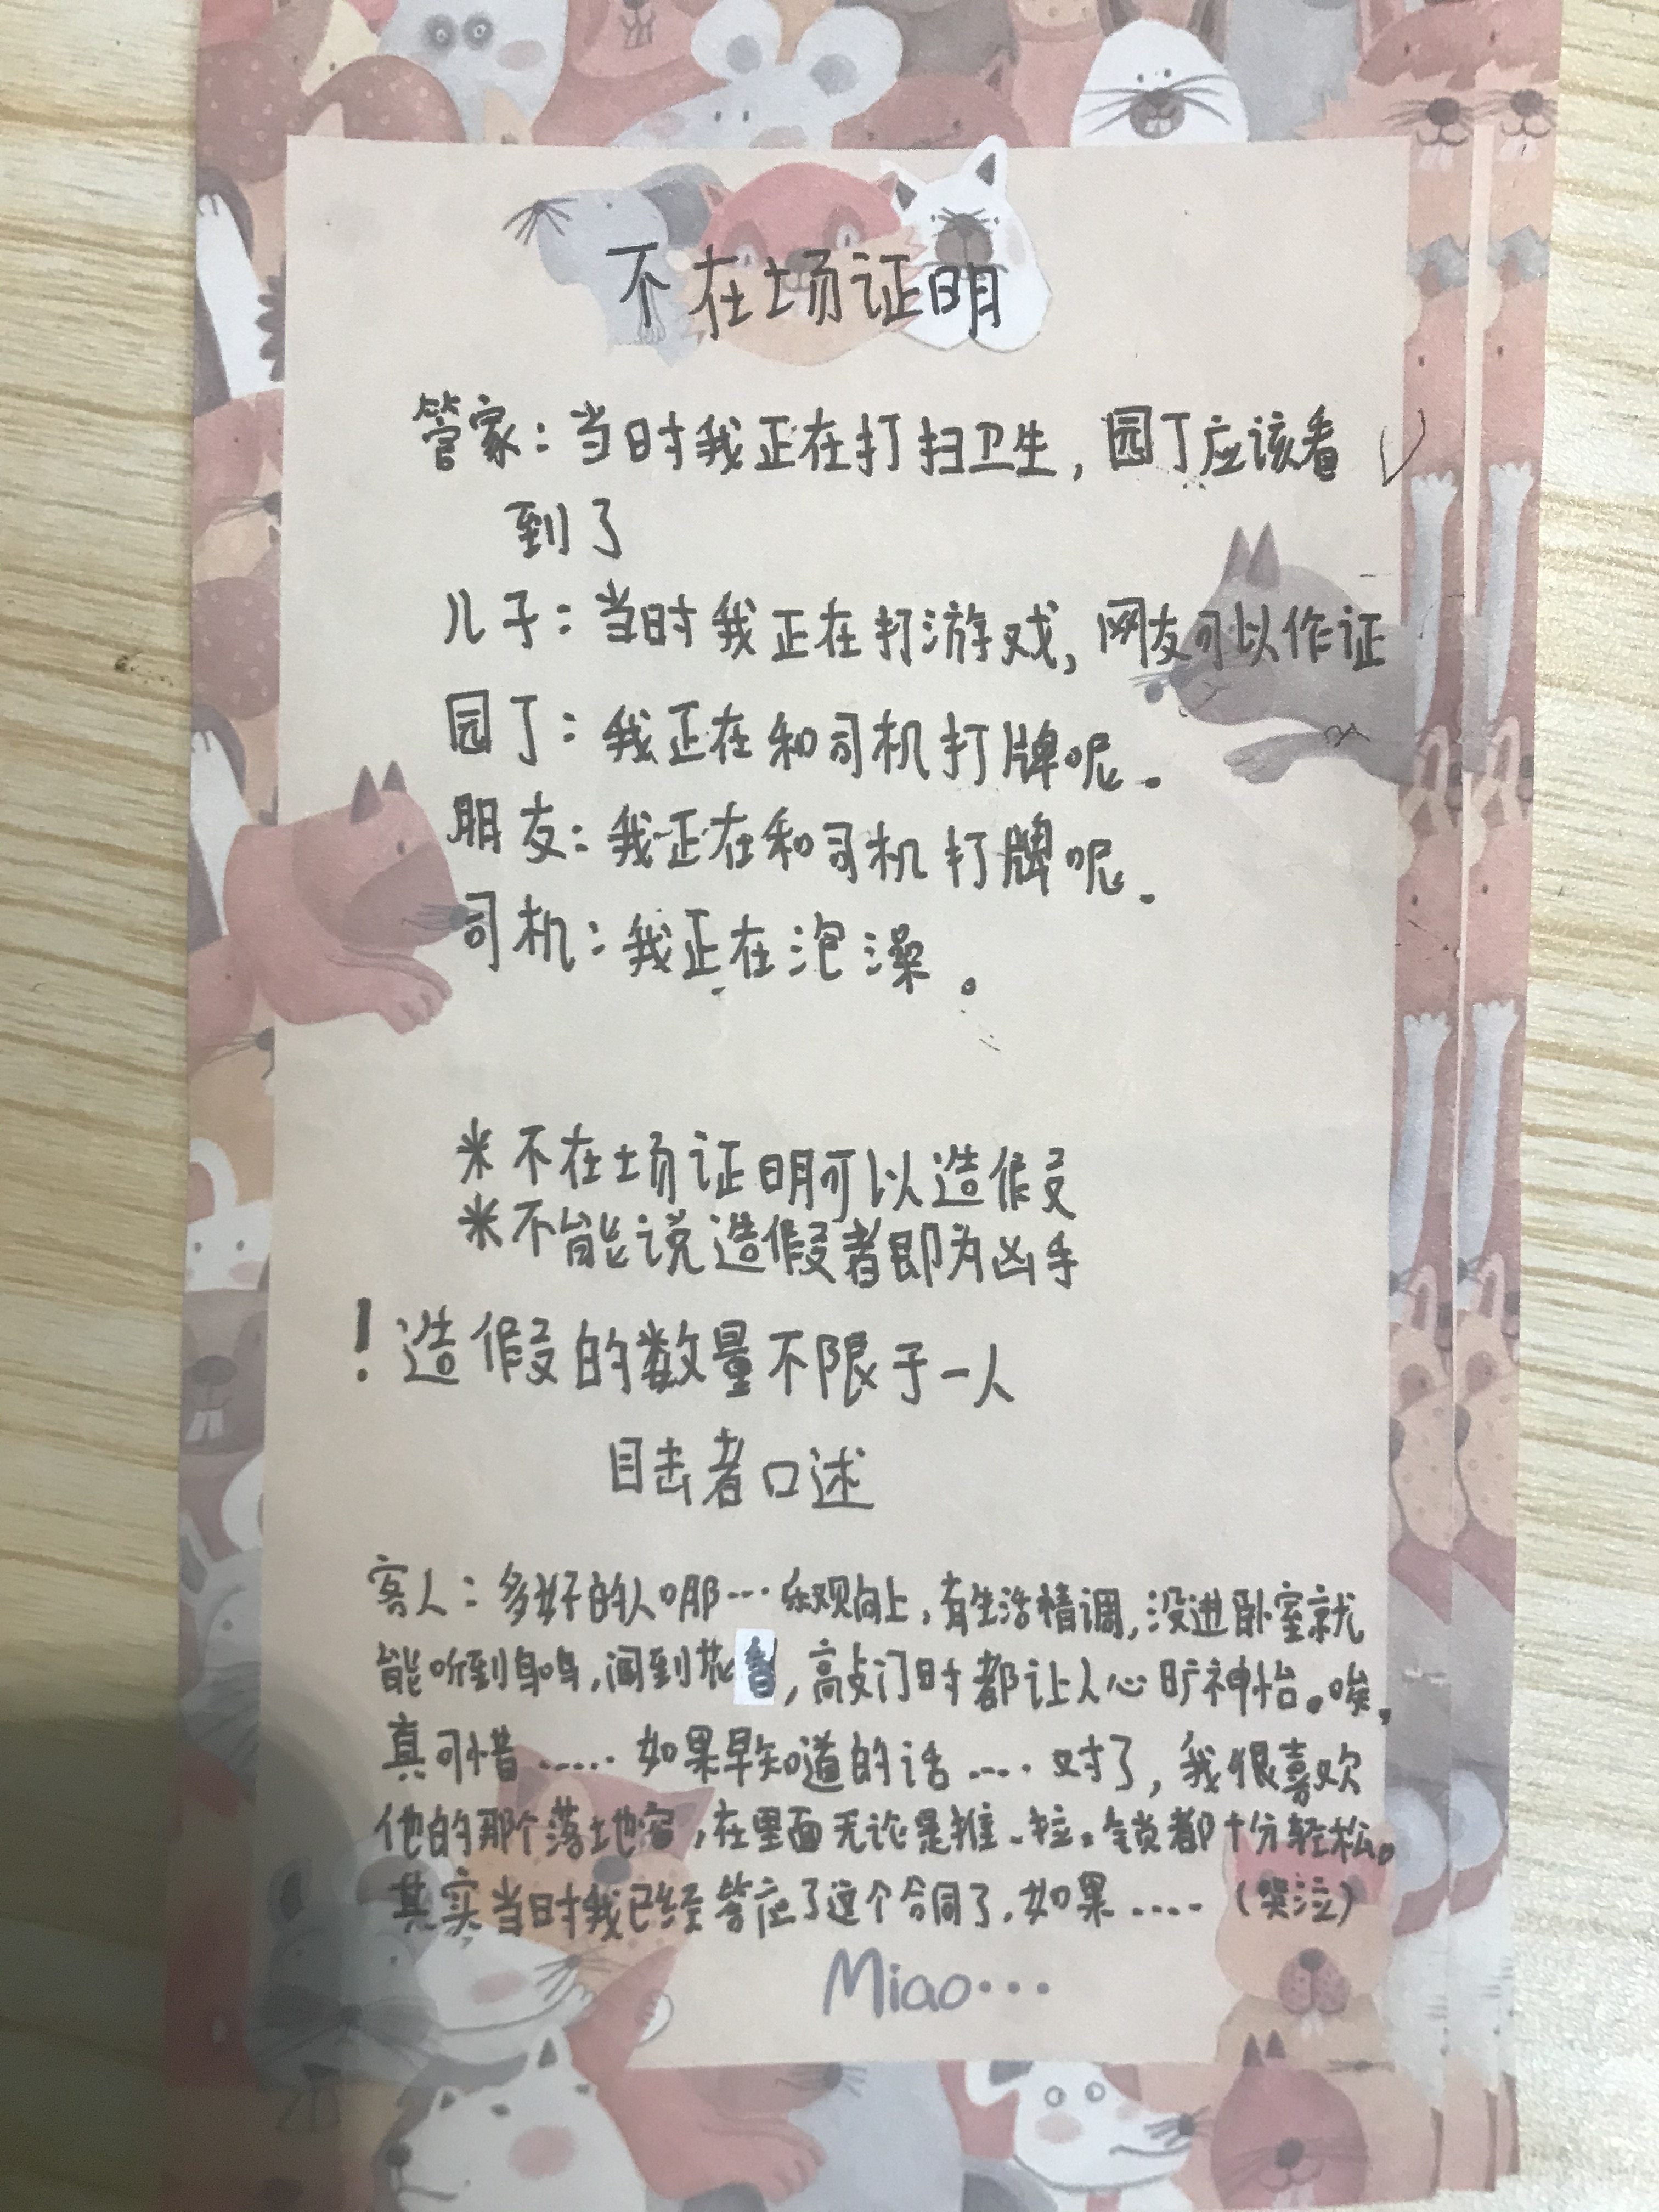 不在场证明
管家：当时我正在打扫卫生，园丁应该看
到了
儿子：当时我正在打游戏，网友可以作证
园丁：我正在和司机打牌呢。
朋友：我正在和司机打牌呢。
司机：我正在泡澡。
※不在场证明可以造假
※不能说造假者即为凶手
！造假的数量不限于一人
目击者口述
客人：多好的人哪…乐观向上，有生活情调，没进卧室就
能听到鸟鸣，闻到花香，敲门时都让人心旷神怡。唉，
真可惜……如果早知道的话……对了，我很喜欢
他的那个落地窗，在里面无论是推、拉、锁都十分轻松。
其实当时我已经答应了这个合同了，如果……（哭泣）
Miao···